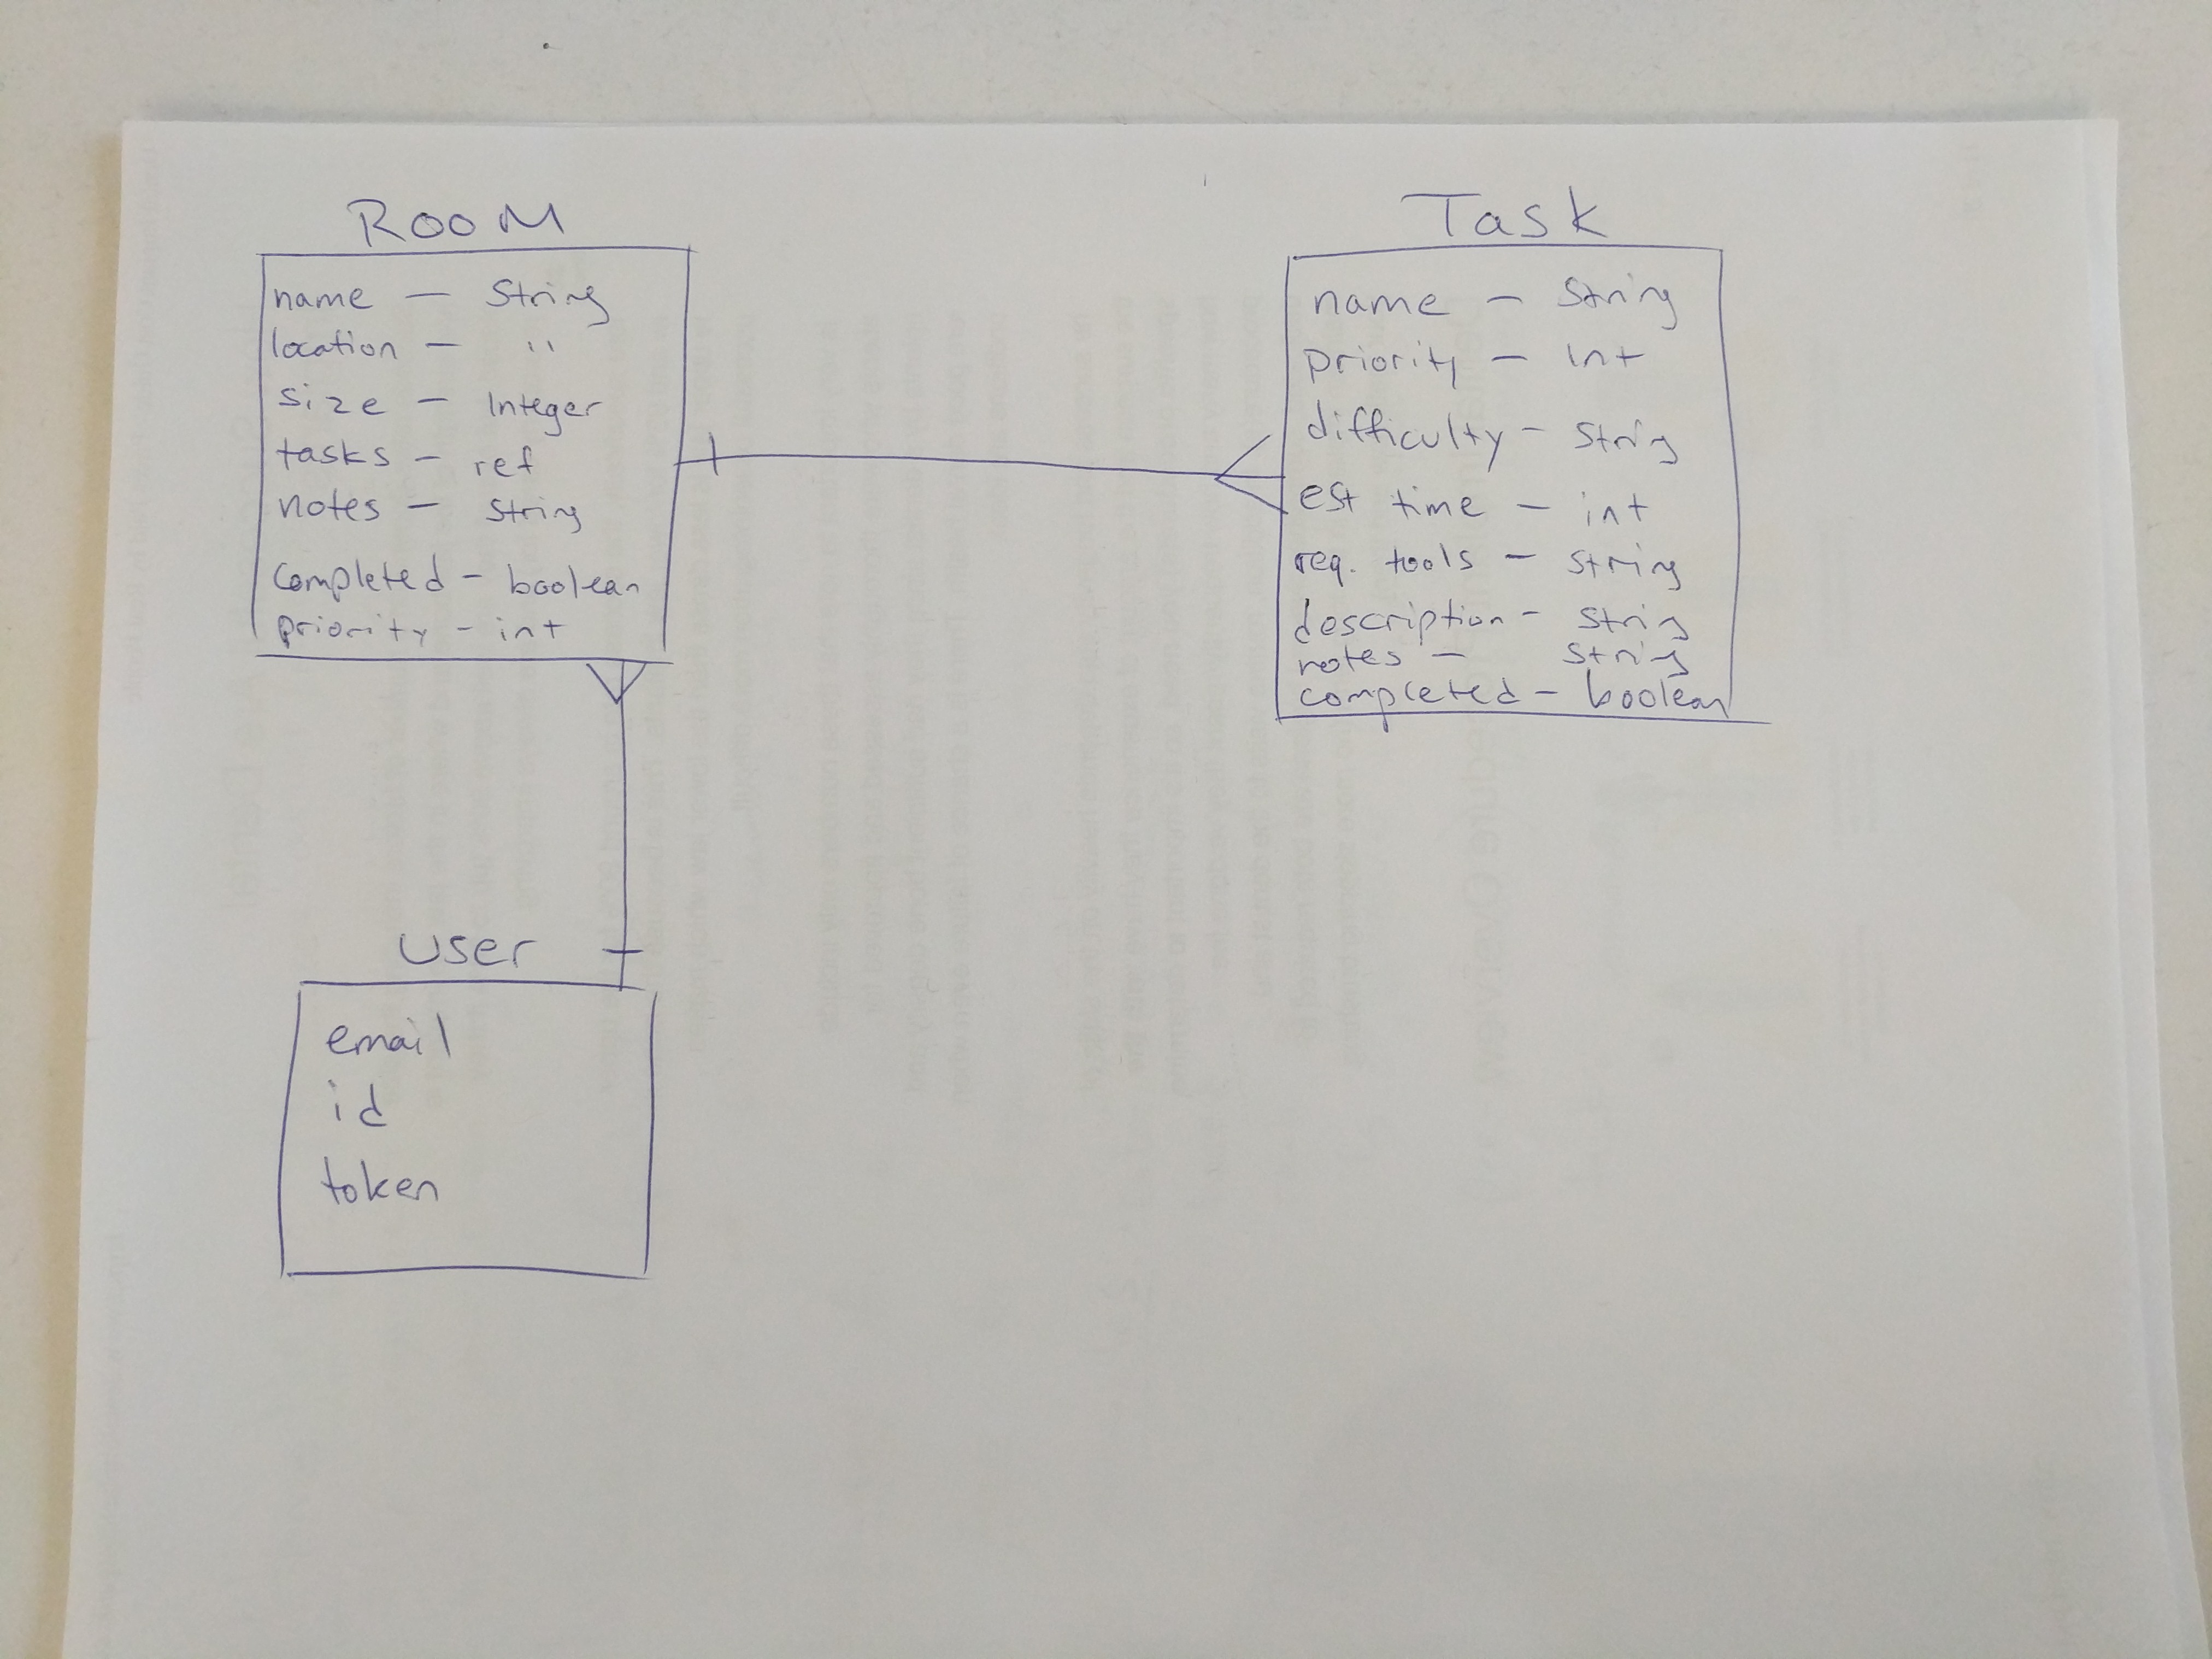 ROOM
name — String
location — "
size — Integer
tasks — ref
notes — String
completed — boolean
priority — int
Task
name — String
priority — int
difficulty — String
est time — int
req. tools — String
description — String
notes — String
completed — boolean
user
email
id
token